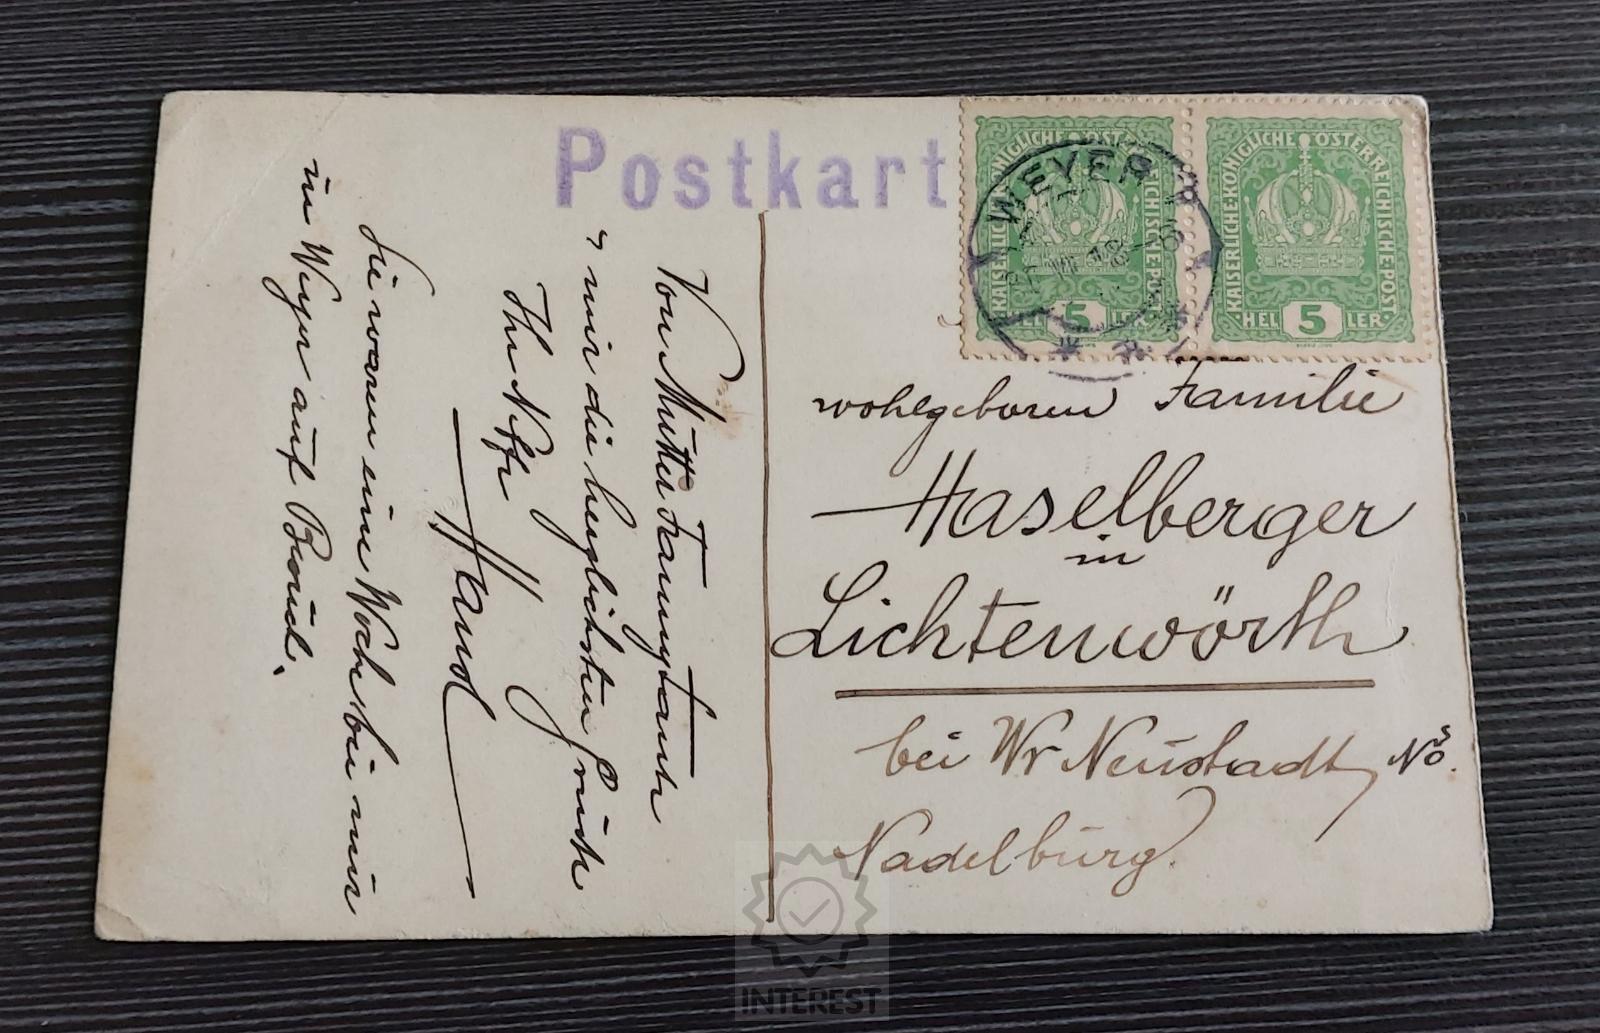 Postkart
KAISERLICHE KÖNIGLICHE ÖSTERREICHISCHE POST
5
HELLER
KAISERLICHE KÖNIGLICHE ÖSTERREICHISCHE POST
5
HELLER
WEYER
wohlgeboren Familie
Haselberger
in
Lichtenwörth
bei Wr Neustadt, NÖ.
Nadelburg.
Von Mutter Fannytante
u mir die herzlichsten Grüße
Ihr Neffe
Hansl
Sie waren eine Woche bei mir
in Weyer auf Besuch.
INTEREST